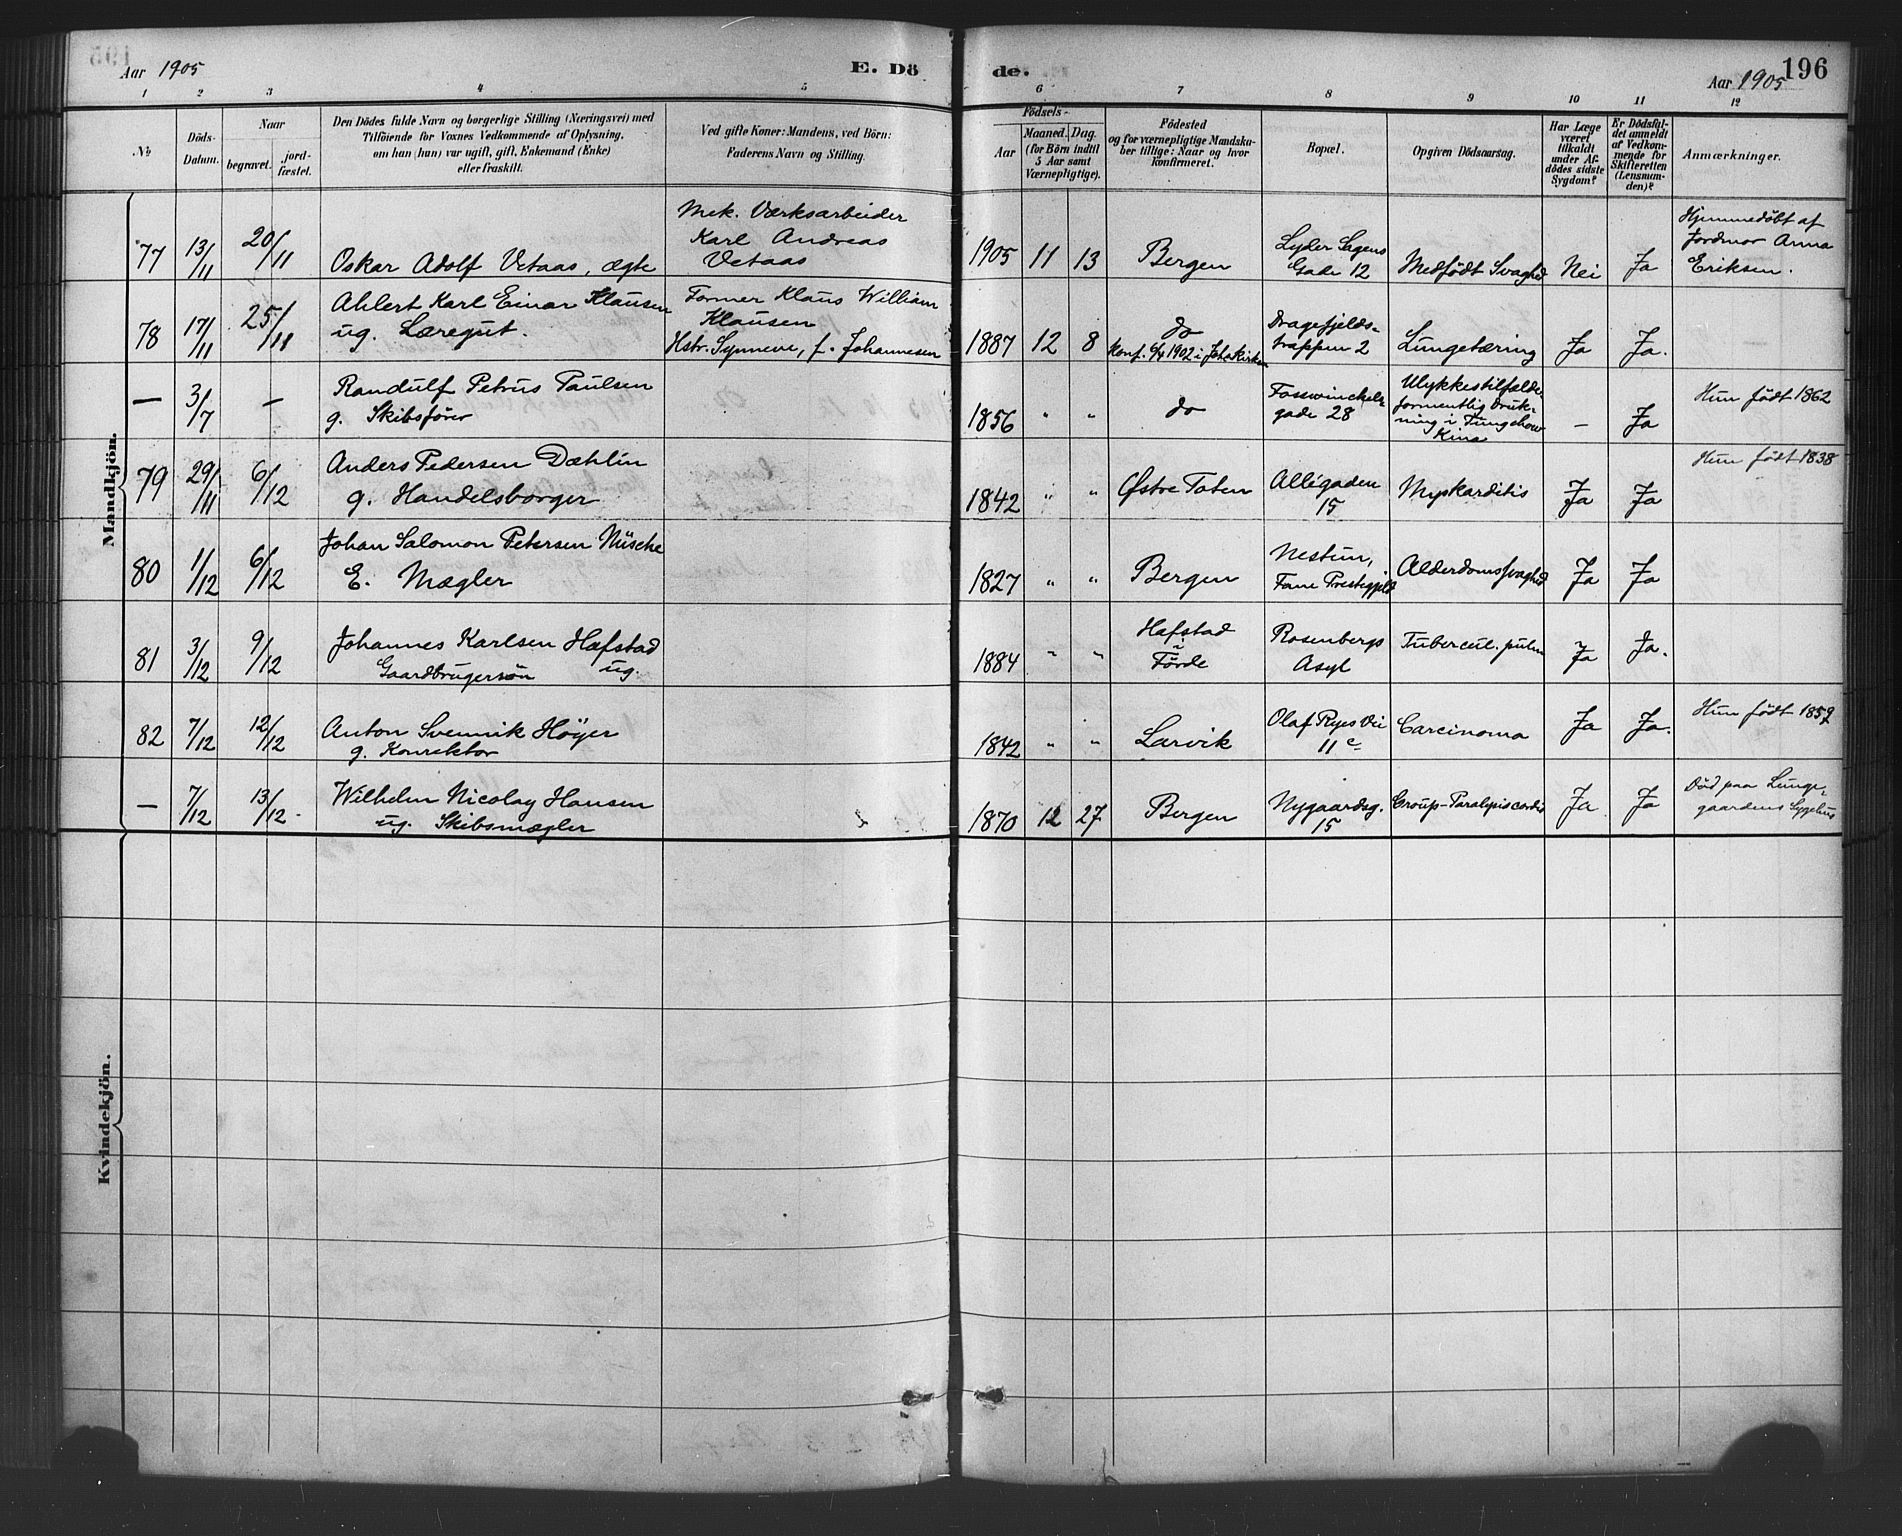 Aar 1905
E. Dö
de.
Aar 1905
196
1 2 3 4 5 6 7 8 9 10 11 12
No
Döds-
Datum.
Naar
begravet.
jord-
fæstet.
Den Dödes fulde Navn og borgerlige Stilling (Næringsvei) med
Tilföiende for Voxnes Vedkommende af Oplysning,
om han (hun) var ugift, gift, Enkemand (Enke)
eller fraskilt.
Ved gifte Koner: Mandens, ved Börn:
Faderens Navn og Stilling.
Födsels-
Aar
Maaned. Dag.
(for Börn indtil
5 Aar samt
Værnepligtige).
Födested
og for værnepligtige Mandska-
ber tillige: Naar og hvor
konfirmeret.
Bopæl.
Opgiven Dödsaarsag.
Har Læge
været
tilkaldt
under Af-
dödes sidste
Sygdom?
Er Dödsfal-
det anmeldt
af Vedkom-
mende for
Skifteretten
(Lensman-
den)?
Anmærkninger.
Mandkjön.
77 13/11 20/11 Oskar Adolf Vetaas, ægte
Mek. Værksarbeider
Karl Andreas
Vetaas
1905 11 13 Bergen
Lyder Sagens
Gade 12
Medfödt Svaghed Nei Ja
Hjemmedöbt af
Jordmor Anna
Eriksen.
78 17/11 25/11
Ahlert Karl Einar Klausen
ug. Læregut.
Former Klaus William
Klausen
Hstr. Synneve, f. Johannesen
1887 12 8
do
Konf. 6/4 1902 i Johskirken
Dragefjelds-
trappen 2
Lungetæring Ja Ja.
— 3/7 —
Randulf Petrus Paulsen
g. Skibsförer
1856 " " do
Fosswinckels-
gade 28
Ulykkestilfælde,
formentlig Druk-
ning i Tungchow
Kina
— Ja
Hun födt 1862
79 29/11 6/12
Anders Pedersen Dæhlin
g. Handelsborger
1842 " " Östre Toten
Allégaden
15
Myokarditis Ja Ja
Hun födt 1838
80 1/12 6/12
Johan Salomon Petersen Müsche
E. Mægler
1827 " " Bergen
Nestun,
Fane Prestegjeld
Alderdomssvaghed Ja Ja
81 3/12 9/12
Johannes Karlsen Hafstad
Gaardbrugersön ug.
1884 " "
Hafstad
i
Förde
Rosenbergs
Asyl
Tubercul. pulm Ja Ja.
82 7/12 12/12
Anton Svennik Höyer
g. Konrektor
1842 " " Larvik
Olaf Ryes Vei
11 c
Carcinoma Ja Ja.
Hun födt 1859
— 7/12 13/12
Wilhelm Nicolay Hansen
ug. Skibsmægler
1870 12 27 Bergen
Nygaardsg.
15
Croup-Paralysis cordis Ja Ja
Död paa Lunge-
gaardens Sygehus
Kvindekjön.